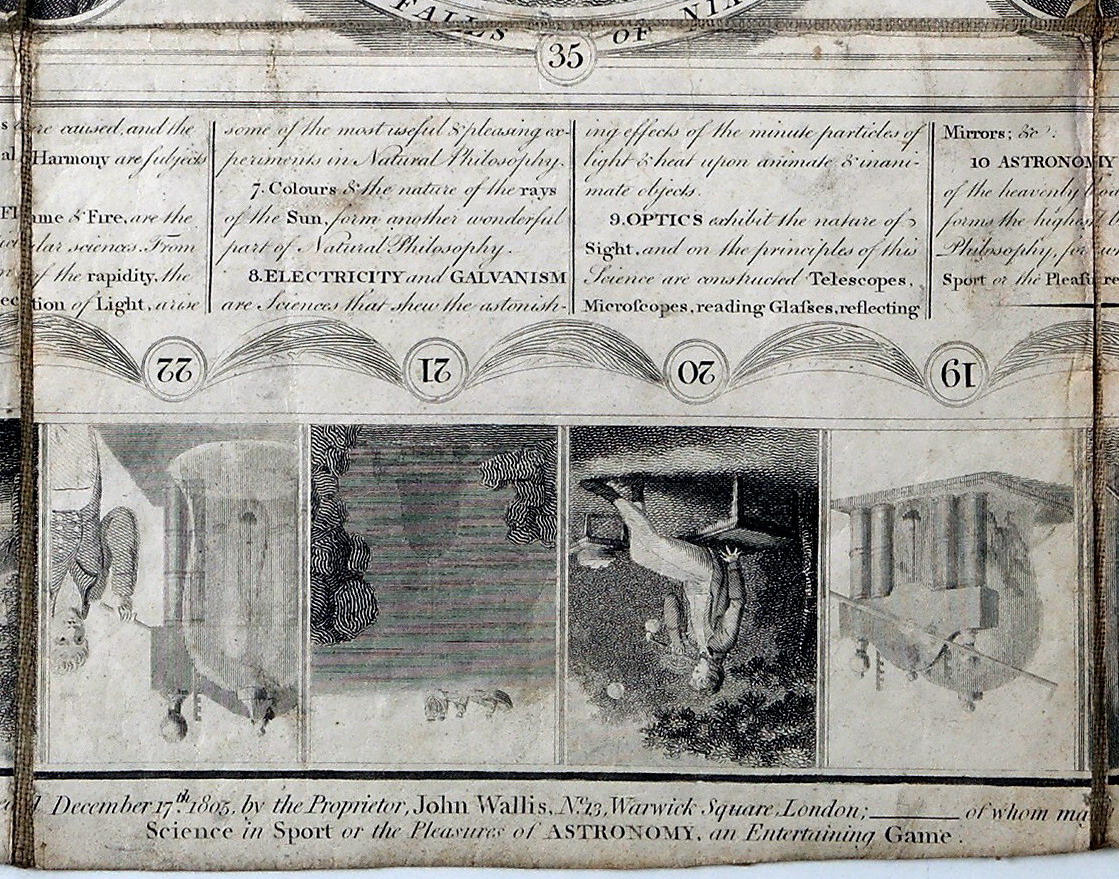 FALLS OF NIA
35
s were caused, and the
al Harmony are subjects
ame & Fire, are the
ular sciences. From
of the rapidity, the
ction of Light, arise
some of the most useful & pleasing ex-
periments in Natural Philosophy.
7. Colours & the nature of the rays
of the Sun, form another wonderful
part of Natural Philosophy.
8. ELECTRICITY and GALVANISM
are Sciences that shew the astonish-
ing effects of the minute particles of
light & heat upon animate & inani-
mate objects.
9. OPTICS exhibit the nature of
Sight, and on the principles of this
Science are constructed Telescopes,
Microſcopes, reading Glaſses, reflecting
Mirrors; &c.
10 ASTRONOMY
of the heavenly
forms the highest
Philosophy, for
Sport or the Pleasure
22
21
20
19
December 17th 1803, by the Proprietor, John Wallis, No. 13, Warwick Square, London; of whom ma
Science in Sport or the Pleasures of ASTRONOMY, an Entertaining Game.